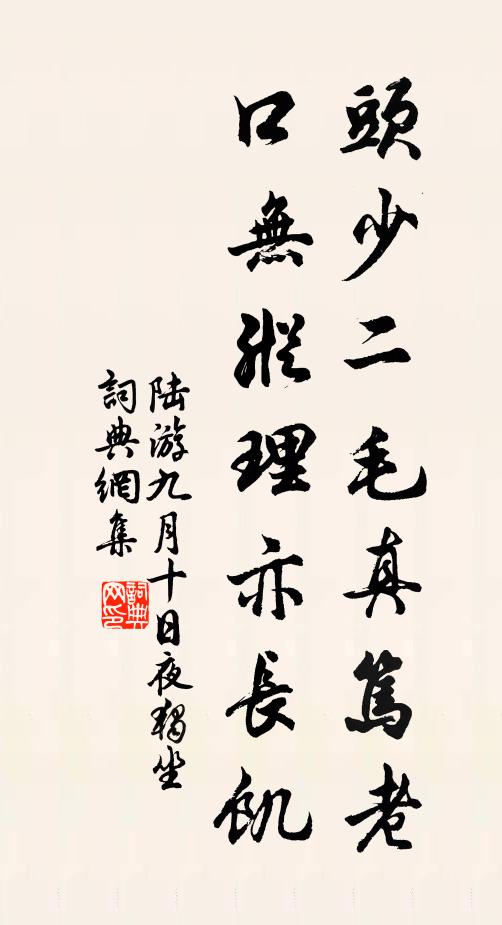 頭少二毛真篤老
口無縱理亦長飢
陸游九月十日夜獨坐
詞典網集
詞典网印